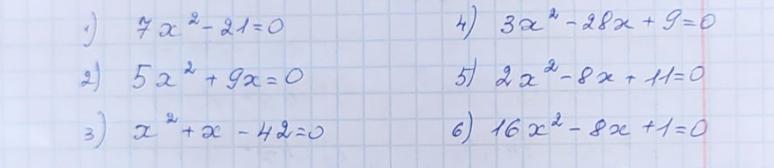 1) 7x² - 21 = 0
2) 5x² + 9x = 0
3) x² + x - 42 = 0
4) 3x² - 28x + 9 = 0
5) 2x² - 8x + 11 = 0
6) 16x² - 8x + 1 = 0